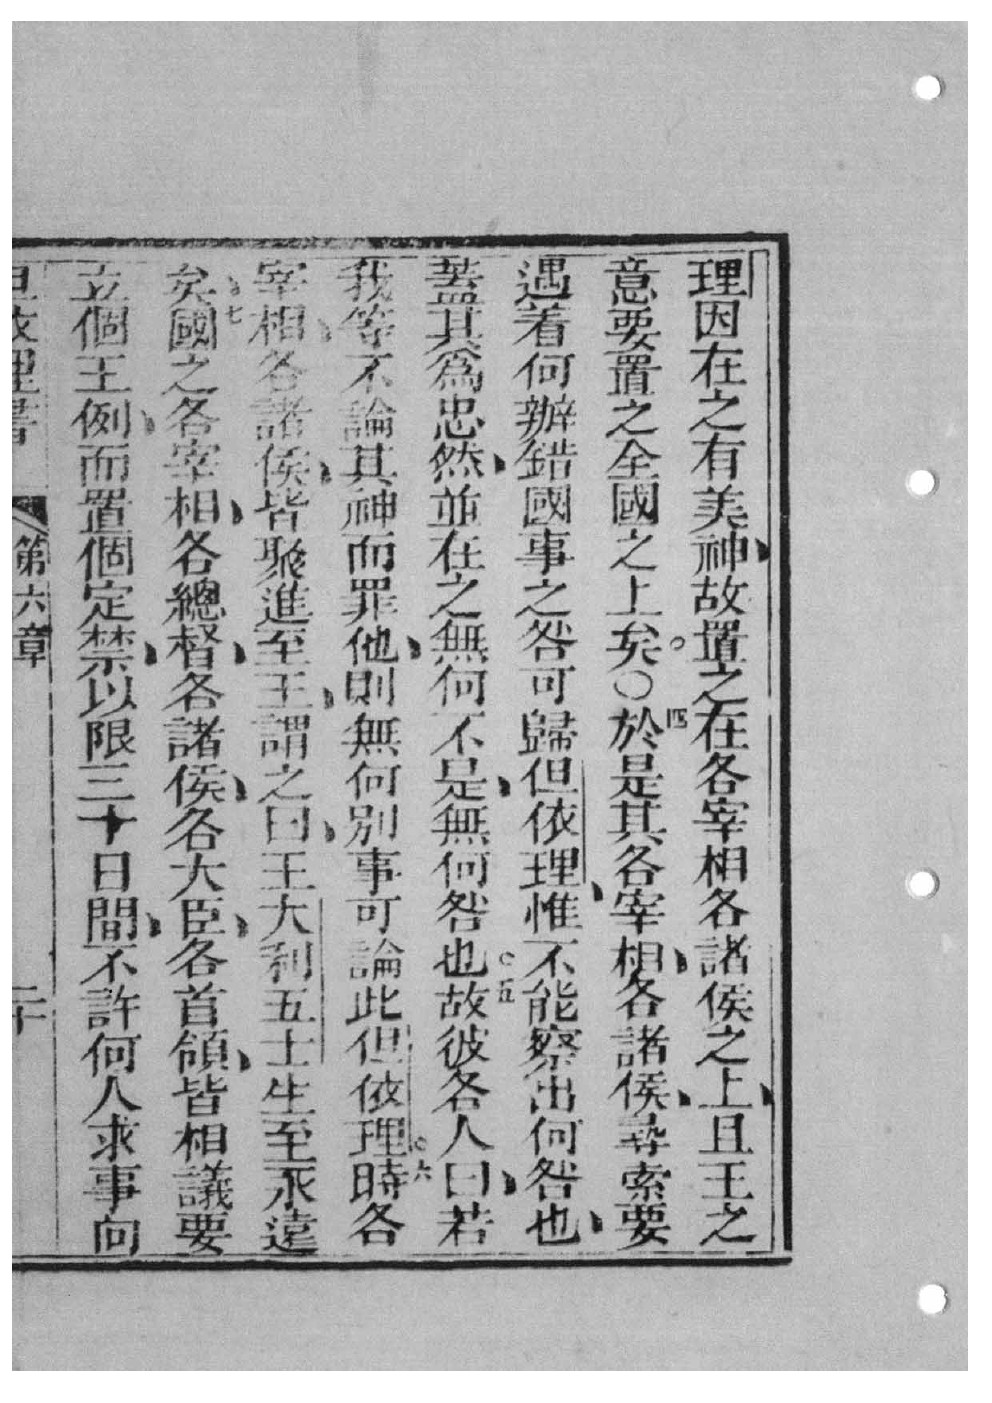 理因在之有美神故置之在各宰相各諸侯之上且王之
意要置之全國之上矣。○四於是其各宰相各諸侯尋索要
遇着何辦錯國事之咎可歸但依理惟不能察出何咎也
蓋其為忠然並在之無何不是無何咎也。五故彼各人曰若
我等不論其神而罪他則無何別事可論此但依理。六時各
宰相各諸侯皆聚進至王謂之曰王大利五士生至永遠
矣。七國之各宰相各總督各諸侯各大臣各首領皆相議要
立個王例而置個定禁以限三十日間不許何人求事向
但依理書 第六章 二十